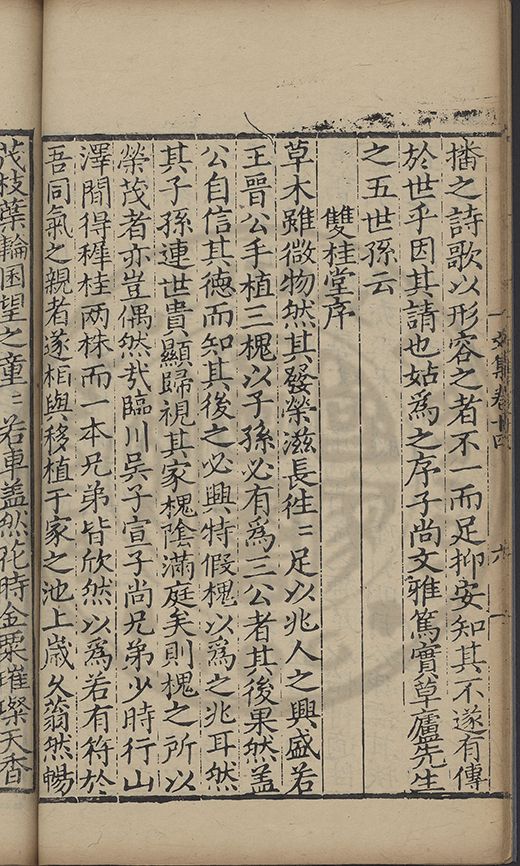 播之詩歌以形容之者不一而足抑安知其不遂有傳
於世乎因其請也姑為之序子尚文雅篤實草廬先生
之五世孫云
雙桂堂序
草木雖微物然其發榮滋長徃〻足以兆人之興盛若
王晉公手植三槐以子孫必有為三公者其後果然蓋
公自信其德而知其後之必興特假槐以為之兆耳然
其子孫連世貴顯歸視其家槐陰滿庭矣則槐之所以
榮茂者亦豈偶然㢤臨川吳子宣子尚兄弟少時行山
澤間得穉桂两株而一本兄弟皆欣然以為若有符於
吾同氣之親者遂相與移植于家之池上歲久蓊然暢
茂枝葉輪囷望之童〻若車蓋然花時金粟璀璨天香